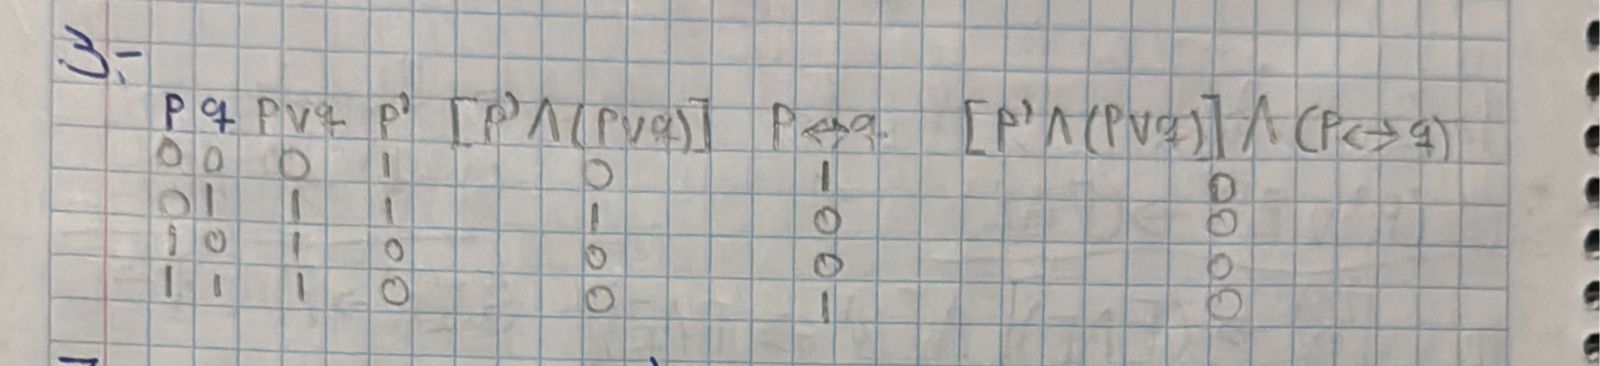 3.-
p q p∨q p' [p'∧(p∨q)] p↔q [p'∧(p∨q)]∧(p↔q)
0 0 0 1 0 1 0
0 1 1 1 1 0 0
1 0 1 0 0 0 0
1 1 1 0 0 1 0